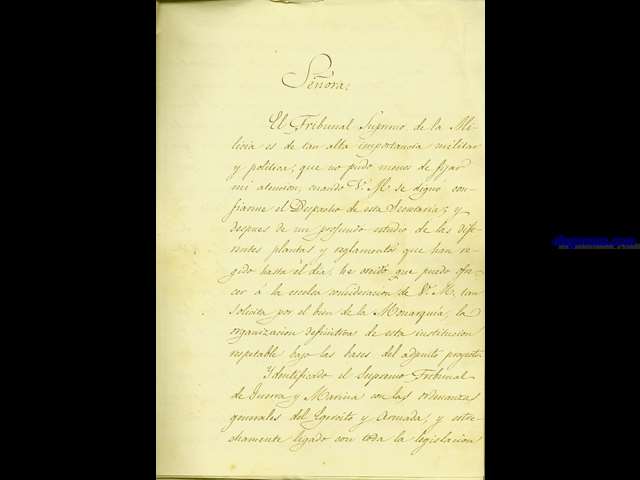 Señora:
El Tribunal Supremo de la Mi-
licia es de tan alta importancia militar
y politica, que no pudo menos de fijar
mi atencion, cuando V. M. se dignó con-
fiarme el Despacho de esta Secretaria; y
despues de un profundo estudio de las dife-
rentes plantas y reglamentos que han re-
gido hasta el dia, he creido que puedo ofre-
cer á la escelsa consideracion de V. M., tan
solicita por el bien de la Monarquia, la
organizacion definitiva de esta institucion
respetable bajo las bases del adjunto proyecto.
Ydentificado el Supremo Tribunal
de Guerra y Marina con las ordenanzas
generales del Egercito y Armada, y estre-
chamente ligado con toda la legislacion